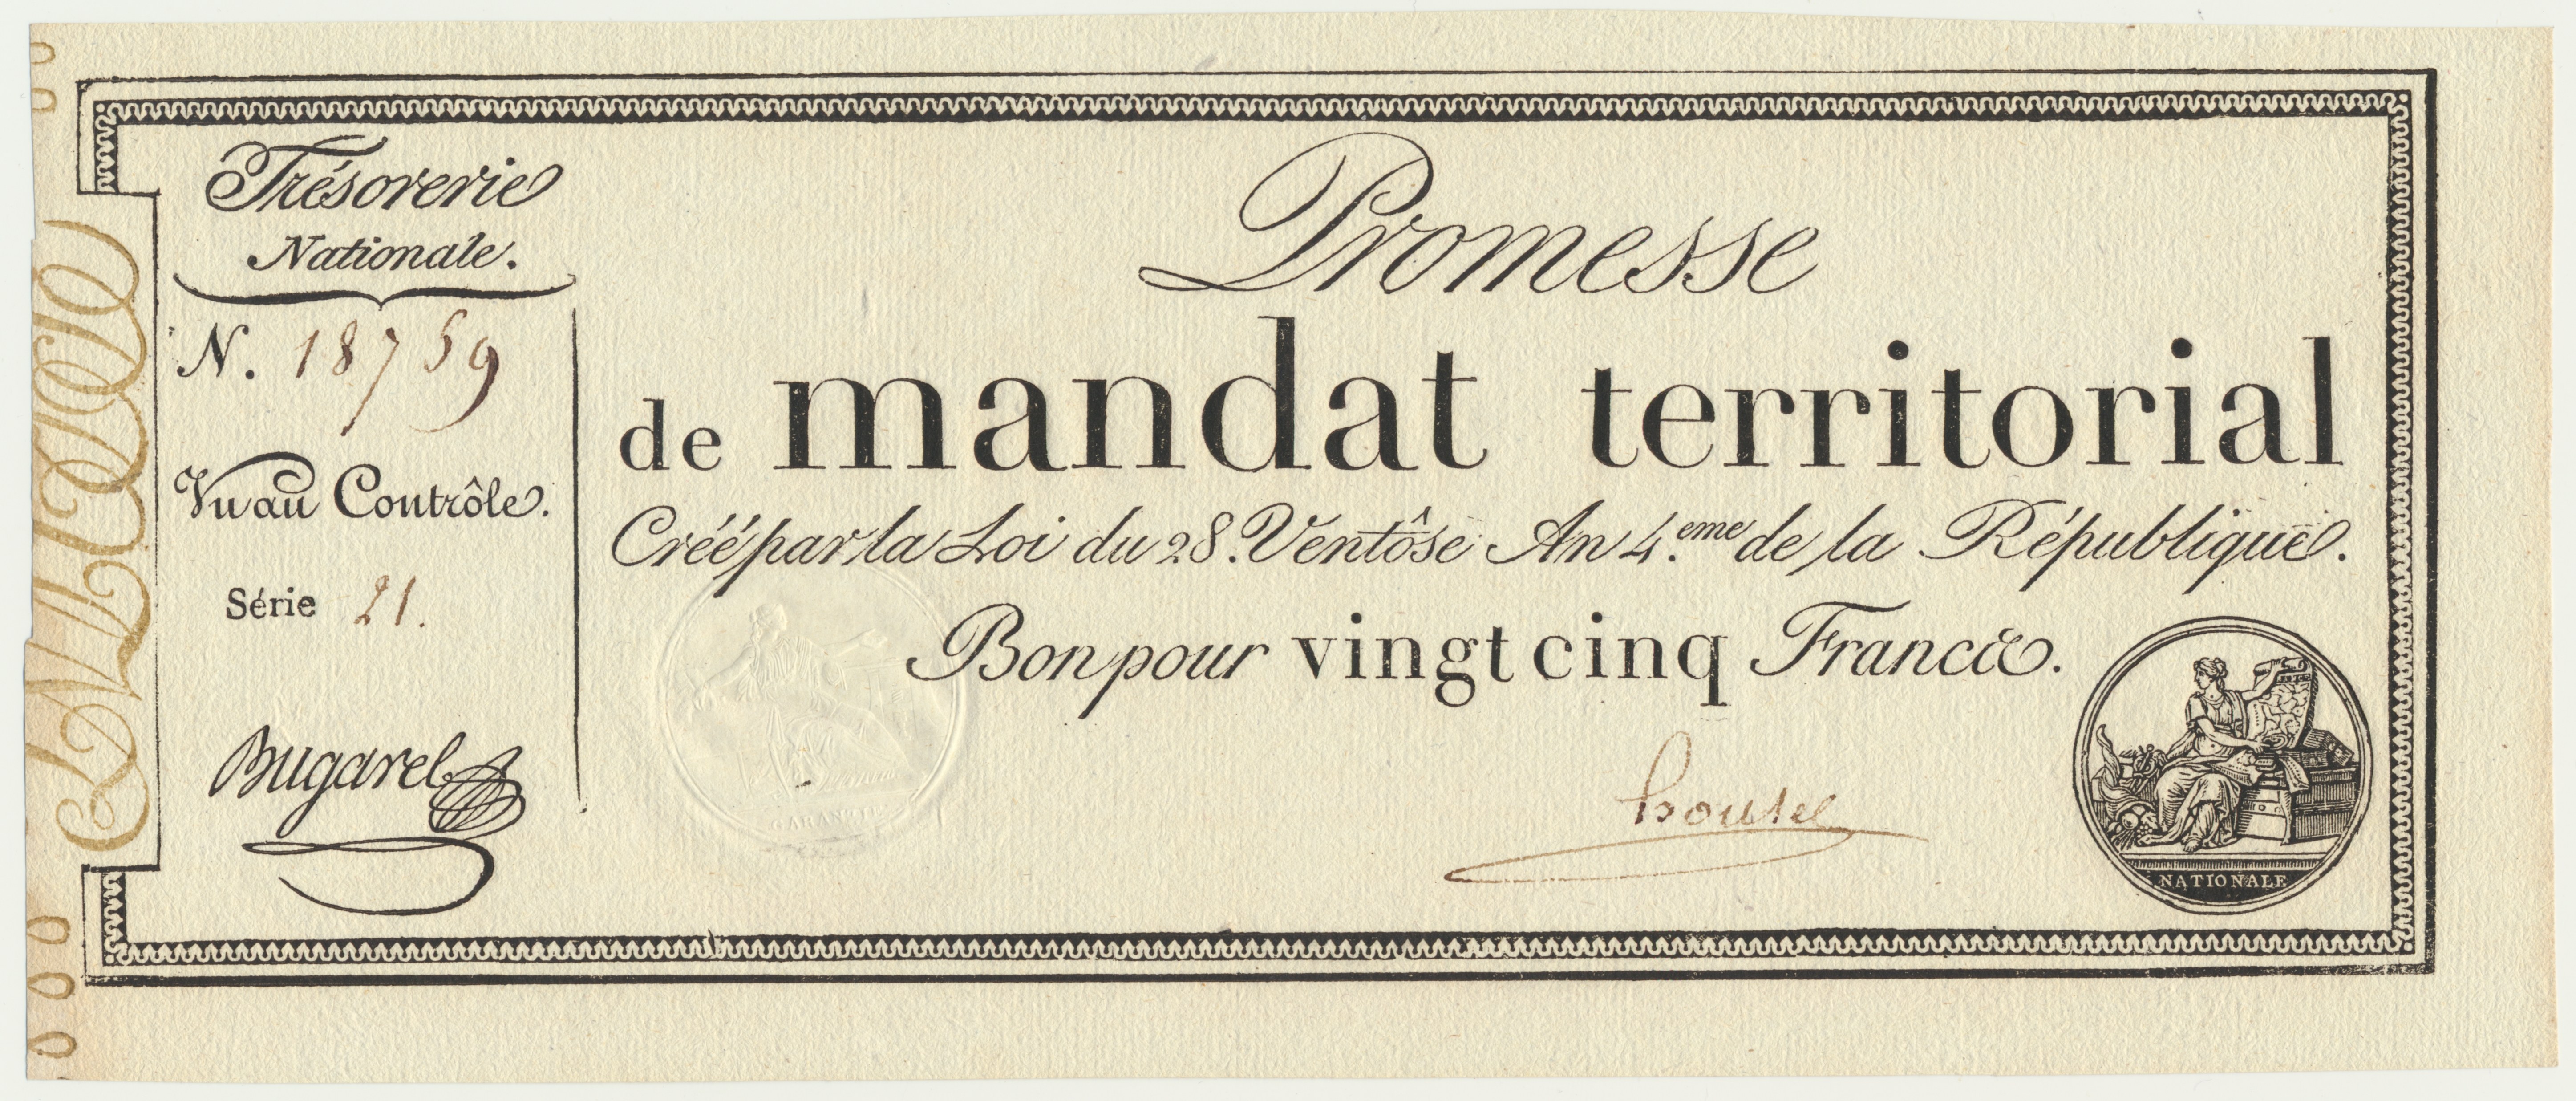 Trésorerie
Nationale.
N. 18759
Vu au Contrôle.
Série 21.
Bugarel
Promesse
de mandat territorial
Créé par la Loi du 28. Ventôse An 4.eme de la République.
Bon pour vingt cinq Francs.
NATIONALE